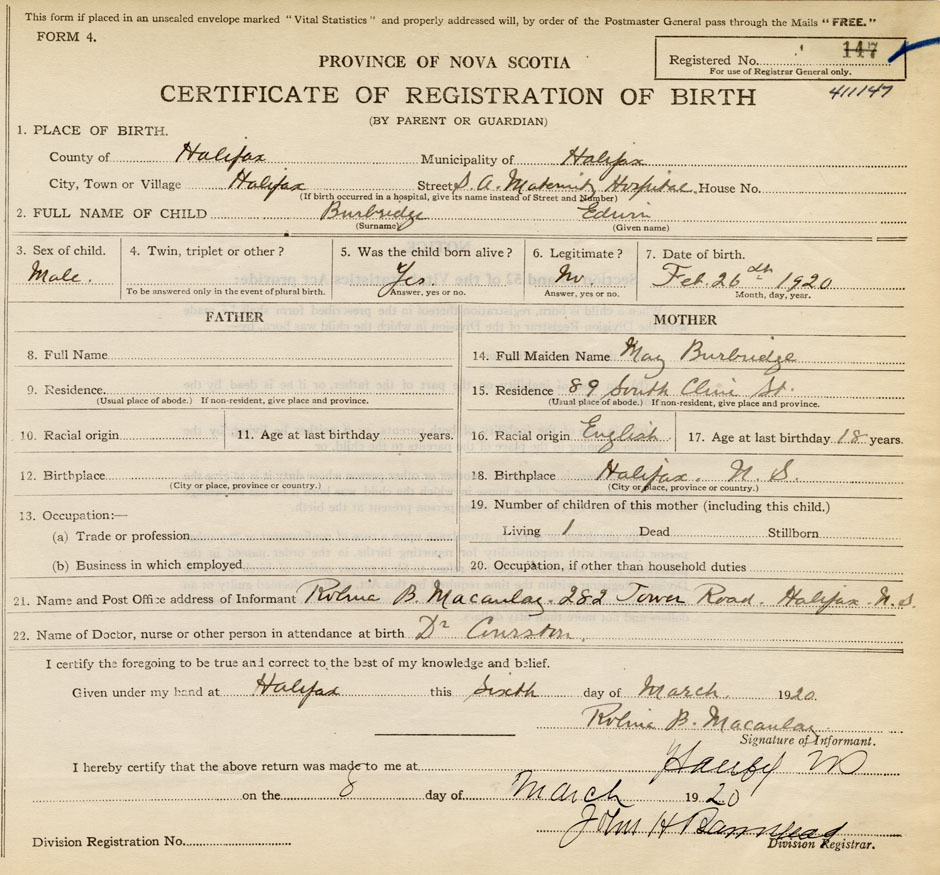 This form if placed in an unsealed envelope marked "Vital Statistics" and properly addressed will, by order of the Postmaster General pass through the Mails "FREE."
FORM 4.
Registered No. 147
For use of Registrar General only.
411147
PROVINCE OF NOVA SCOTIA
CERTIFICATE OF REGISTRATION OF BIRTH
(BY PARENT OR GUARDIAN)
1. PLACE OF BIRTH.
County of Halifax Municipality of Halifax
City, Town or Village Halifax Street S. A. Maternity Hospital House No.
(If birth occurred in a hospital, give its name instead of Street and Number)
2. FULL NAME OF CHILD Burbridge Edwin
(Surname) (Given name)
3. Sex of child. Male.
4. Twin, triplet or other?
To be answered only in the event of plural birth.
5. Was the child born alive? Yes.
Answer, yes or no.
6. Legitimate? No
Answer, yes or no.
7. Date of birth. Feb. 26th 1920
Month, day, year.
FATHER
8. Full Name
9. Residence.
(Usual place of abode.) If non-resident, give place and province.
10. Racial origin 11. Age at last birthday years.
12. Birthplace
(City or place, province or country.)
13. Occupation:—
(a) Trade or profession
(b) Business in which employed
MOTHER
14. Full Maiden Name May Burbridge
15. Residence 89 South St.
(Usual place of abode.) If non-resident, give place and province.
16. Racial origin English 17. Age at last birthday 18 years.
18. Birthplace Halifax. N. S.
(City or place, province or country.)
19. Number of children of this mother (including this child.)
Living 1 Dead Stillborn
20. Occupation, if other than household duties
21. Name and Post Office address of Informant B. Macaulay. 282 Tower Road. Halifax N. S.
22. Name of Doctor, nurse or other person in attendance at birth Dr
I certify the foregoing to be true and correct to the best of my knowledge and belief.
Given under my hand at Halifax this Sixth day of March. 1920.
B. Macaulay
Signature of Informant.
I hereby certify that the above return was made to me at
on the 8 day of March 1920
John H
Division Registrar.
Division Registration No.